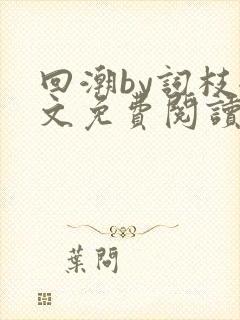 回潮by詞枝
文免費閱讀
葉問